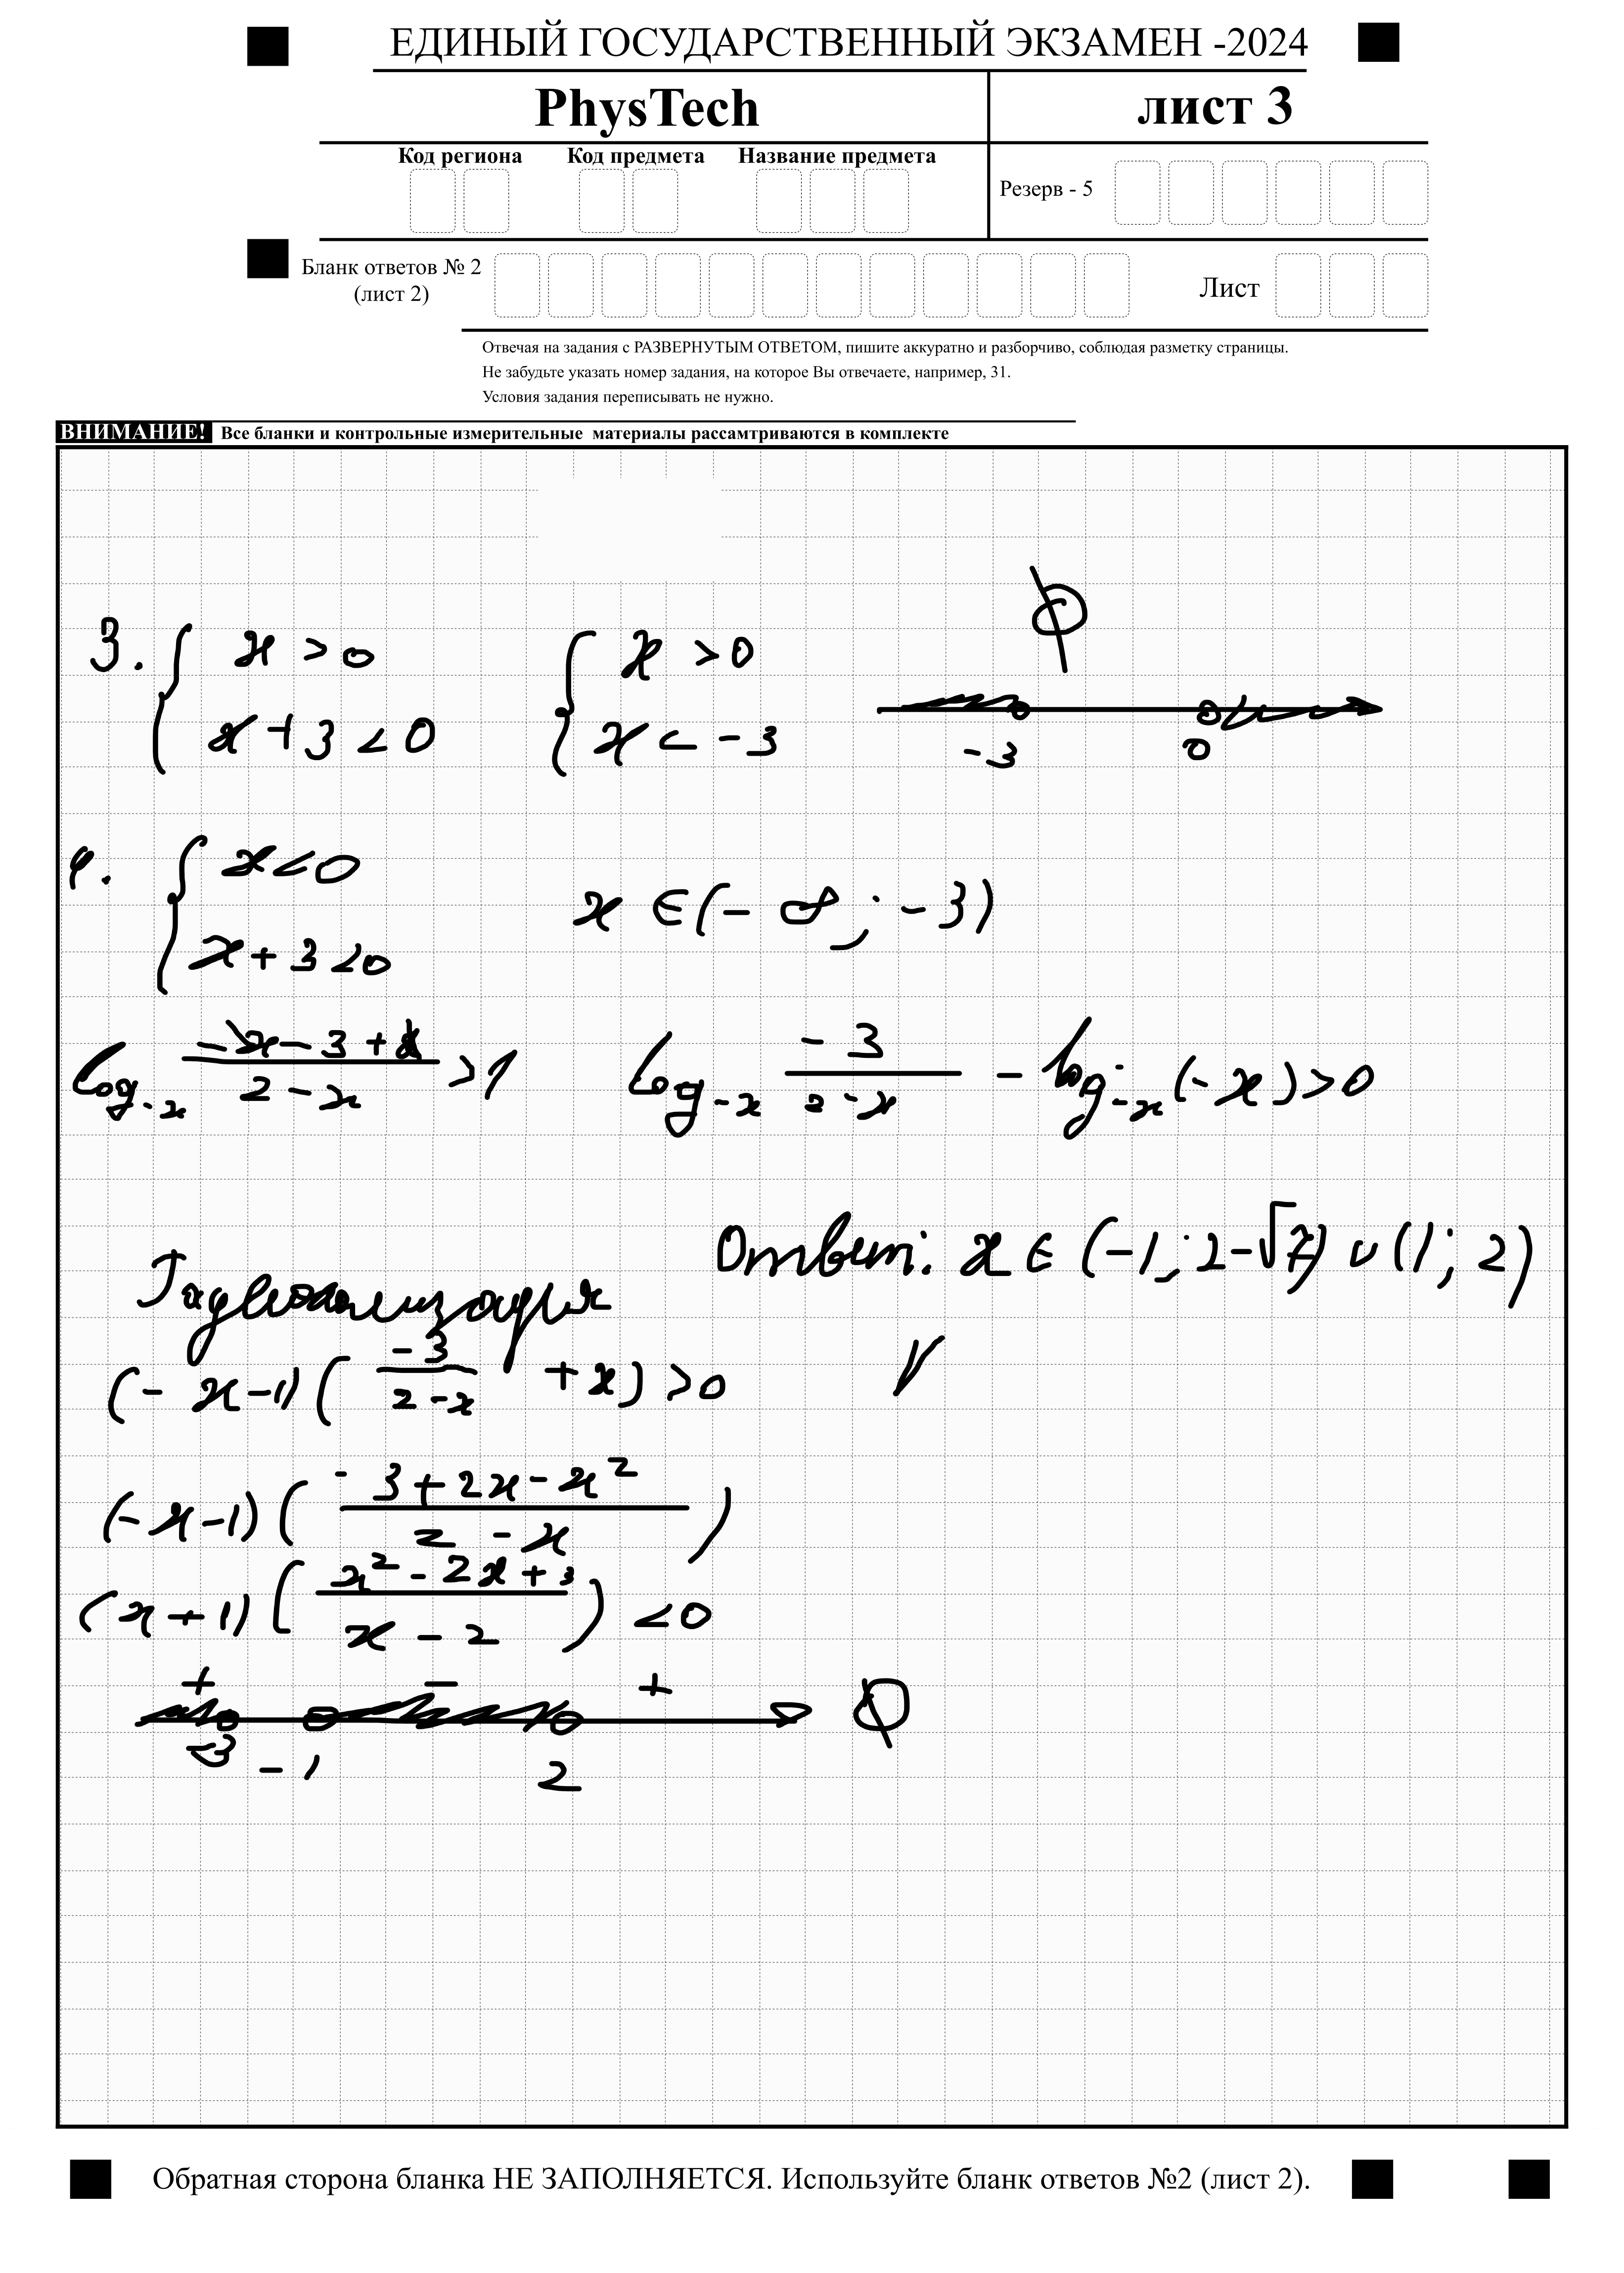 ЕДИНЫЙ ГОСУДАРСТВЕННЫЙ ЭКЗАМЕН -2024
PhysTech
лист 3
Код региона Код предмета Название предмета
Резерв - 5
Бланк ответов № 2
(лист 2)
Лист
Отвечая на задания с РАЗВЕРНУТЫМ ОТВЕТОМ, пишите аккуратно и разборчиво, соблюдая разметку страницы.
Не забудьте указать номер задания, на которое Вы отвечаете, например, 31.
Условия задания переписывать не нужно.
ВНИМАНИЕ! Все бланки и контрольные измерительные материалы рассамтриваются в комплекте
3. { x > 0 { x > 0 ∅
x + 3 < 0 x < -3 -3 0
4. { x < 0
x + 3 < 0 x ∈ (-∞; -3)
log_{-x} (-x - 3 + x)/(2 - x) > 1 log_{-x} (-3)/(2 - x) - log_{-x} (-x) > 0
Ответ: x ∈ (-1; 2-√7) ∪ (1; 2)
(-x-1) ( (-3)/(2-x) + x ) > 0
(-x-1) ( (-3+2x-x²)/(2-x) )
(x+1) ( (x²-2x+3)/(x-2) ) < 0
+ - + ∅
-3 -1 2
Обратная сторона бланка НЕ ЗАПОЛНЯЕТСЯ. Используйте бланк ответов №2 (лист 2).